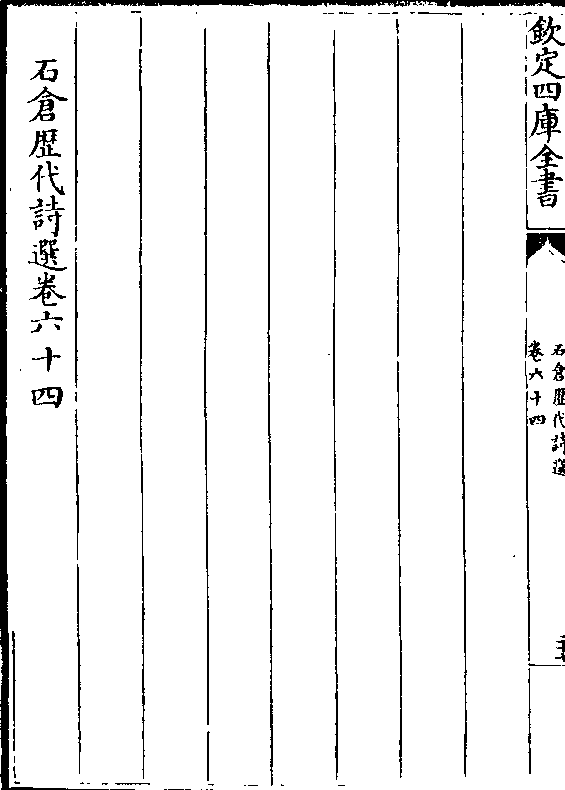 欽定四庫全書
石倉歷代詩選
卷六十四
石倉歷代詩選卷六十四